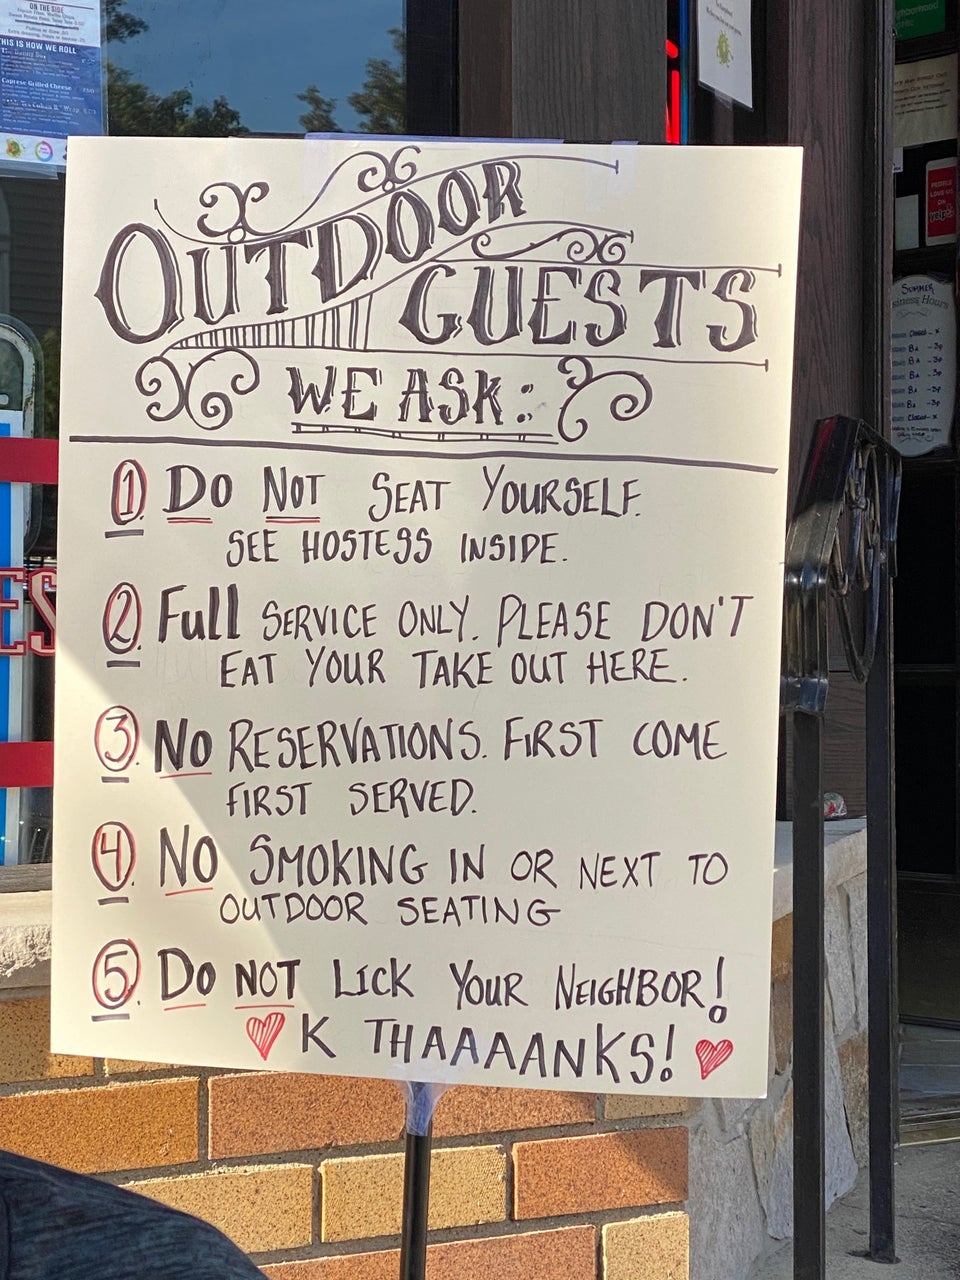 ON THE SIDE
THIS IS HOW WE ROLL
Caprese Grilled Cheese
OUTDOOR
GUESTS
WE ASK:
1. DO NOT SEAT YOURSELF.
SEE HOSTESS INSIDE.
2. Full SERVICE ONLY. PLEASE DON'T
EAT YOUR TAKE OUT HERE.
3. NO RESERVATIONS. FIRST COME
FIRST SERVED.
4. NO SMOKING IN OR NEXT TO
OUTDOOR SEATING
5. DO NOT LICK YOUR NEIGHBOR!
K THAAAANKS!
ES
PEOPLE
LOVE US
ON
yelp
SUMMER
Business Hours
8A -3p
8A -3p
8A -3p
8A -3p
8A -3p